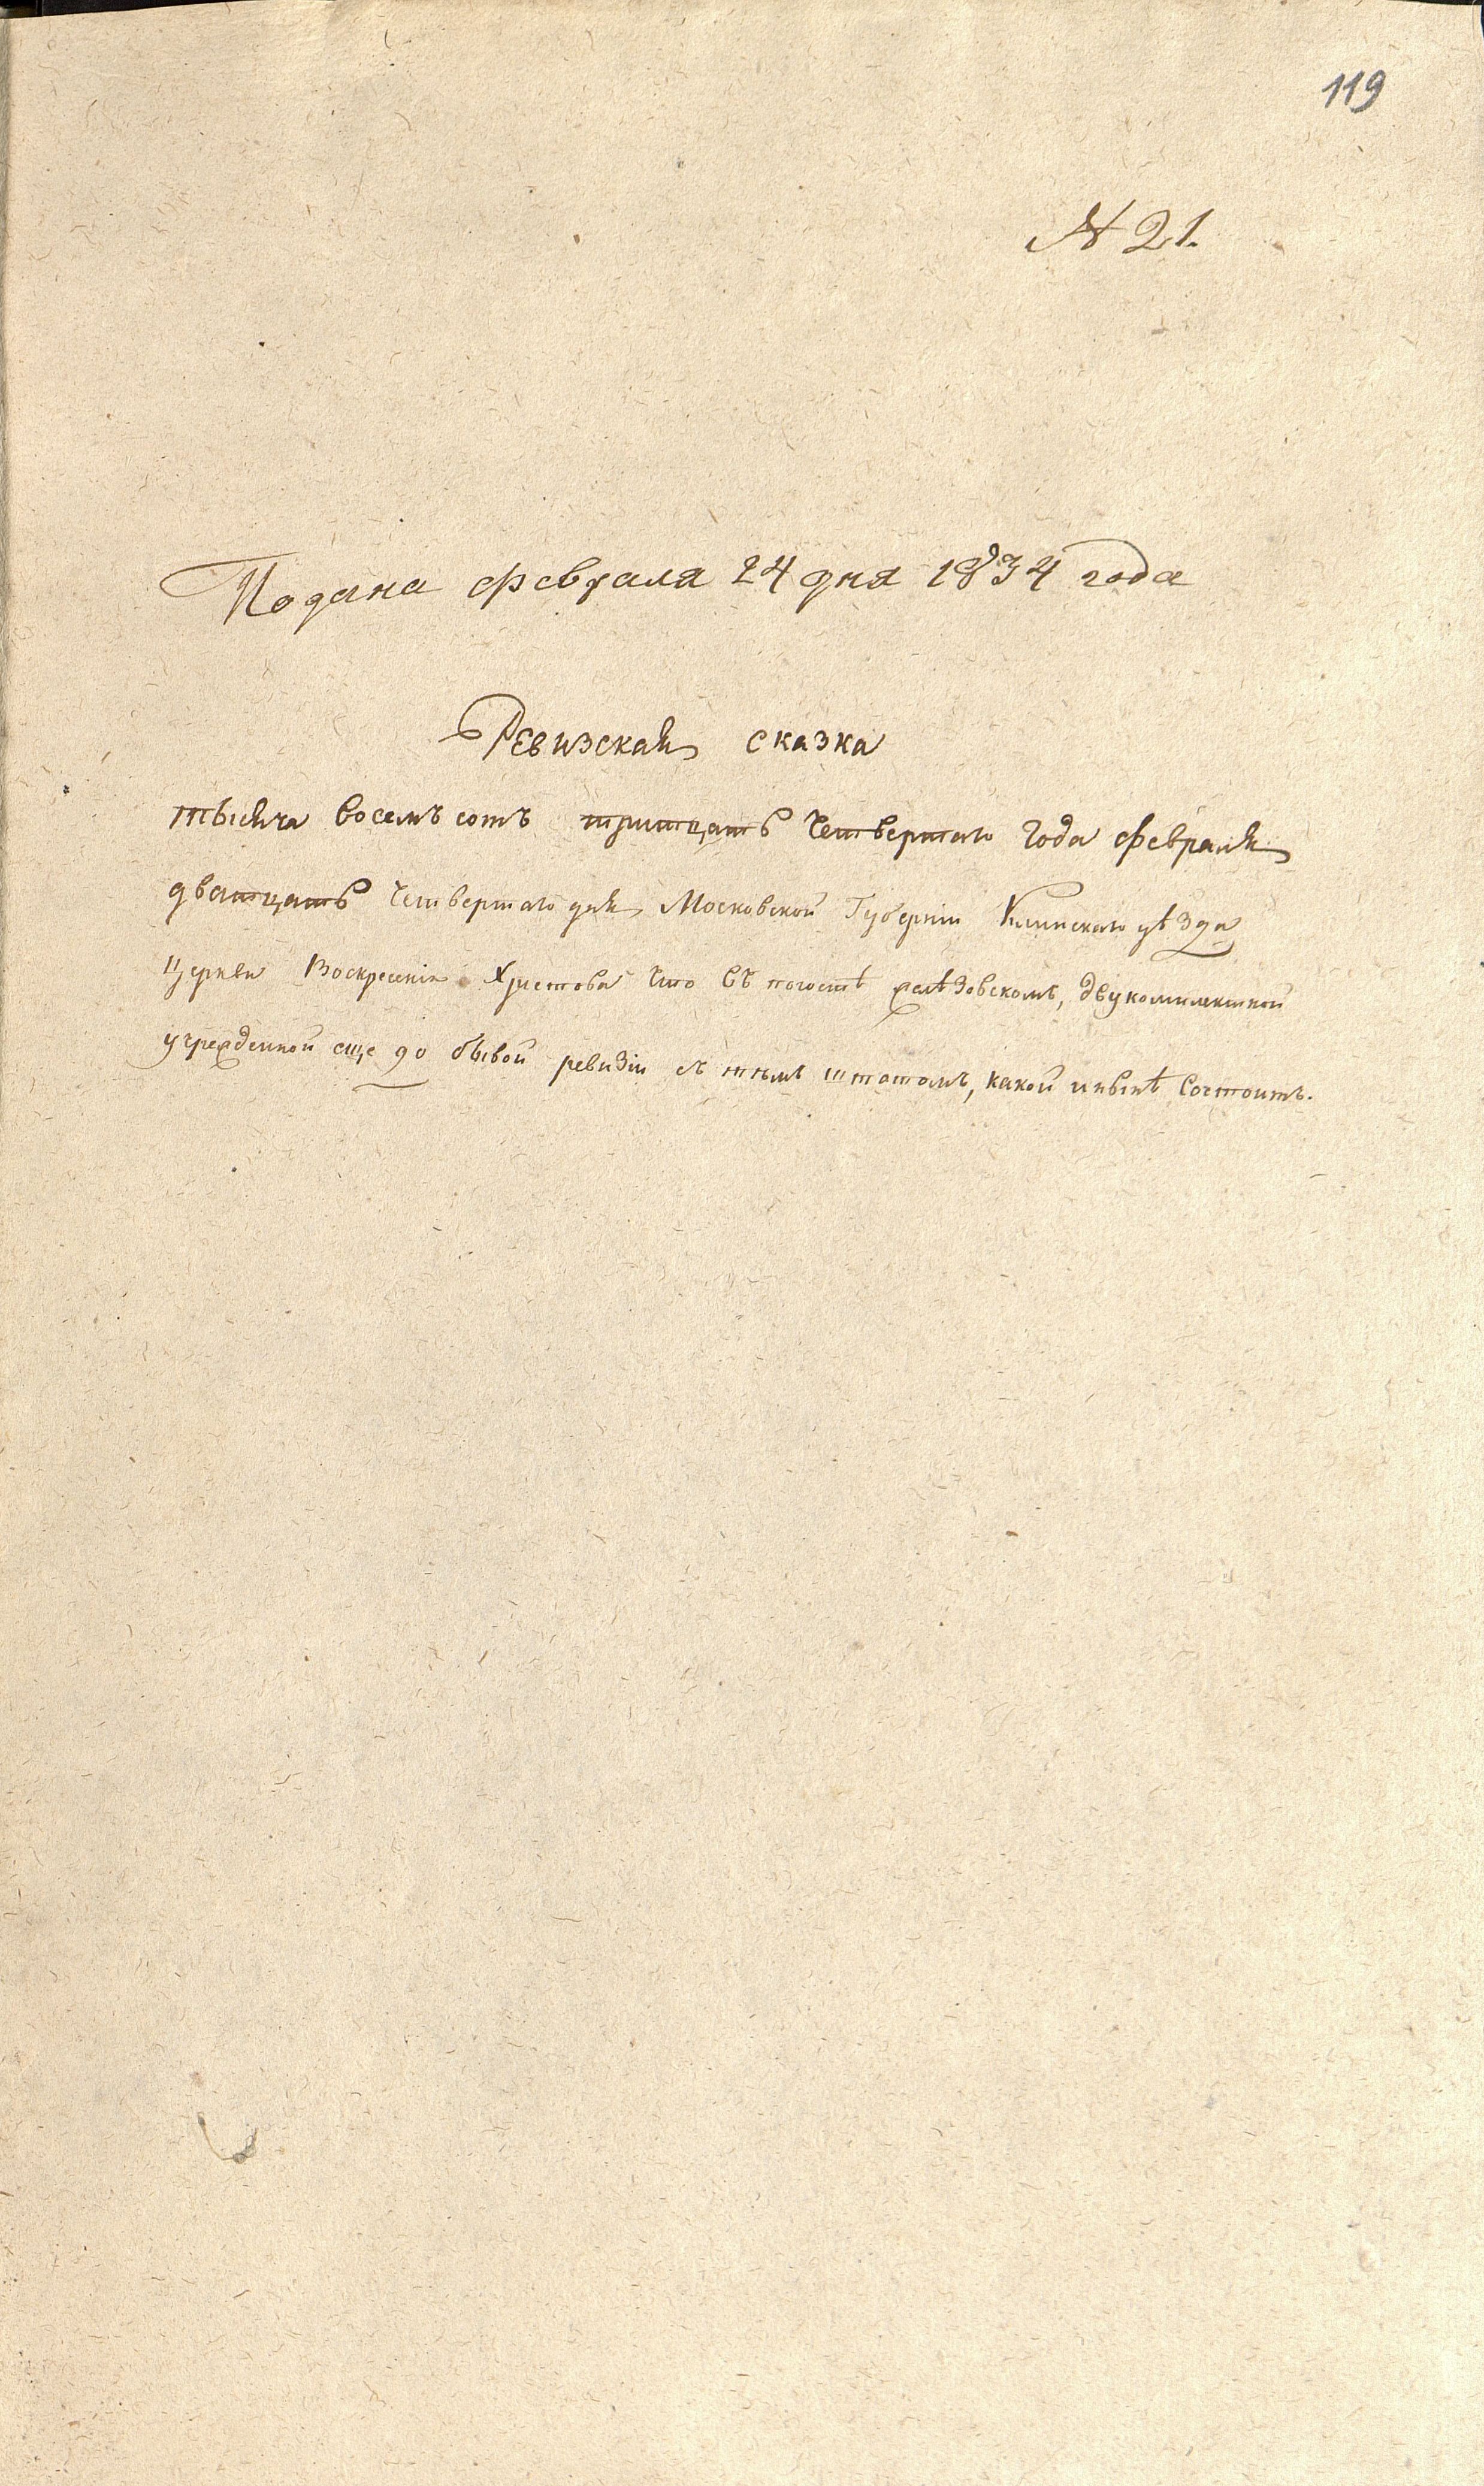 119
№ 21.
Подана февраля 24 дня 1834 года
Ревизская сказка
тысяча восемъ сотъ тритцать четвертаго года февраля
дватцать четвертаго дня Московской Губерніи Клинскаго уѣзда
церкви Воскресенія Христова что въ погостѣ желѣзовскомъ, двукомплектной
учрежденной еще до бывой ревизіи съ тѣмъ штатомъ, какой и нынѣ состоитъ.